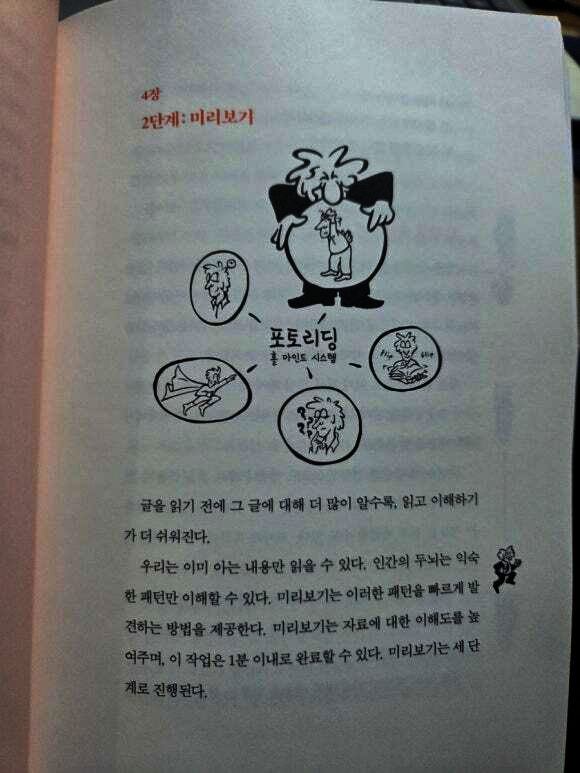 4장
2단계: 미리보기
포토리딩
홀 마인드 시스템
flip
flip
???
글을 읽기 전에 그 글에 대해 더 많이 알수록, 읽고 이해하기
가 더 쉬워진다.
우리는 이미 아는 내용만 읽을 수 있다. 인간의 두뇌는 익숙
한 패턴만 이해할 수 있다. 미리보기는 이러한 패턴을 빠르게 발
견하는 방법을 제공한다. 미리보기는 자료에 대한 이해도를 높
여주며, 이 작업은 1분 이내로 완료할 수 있다. 미리보기는 세 단
계로 진행된다.